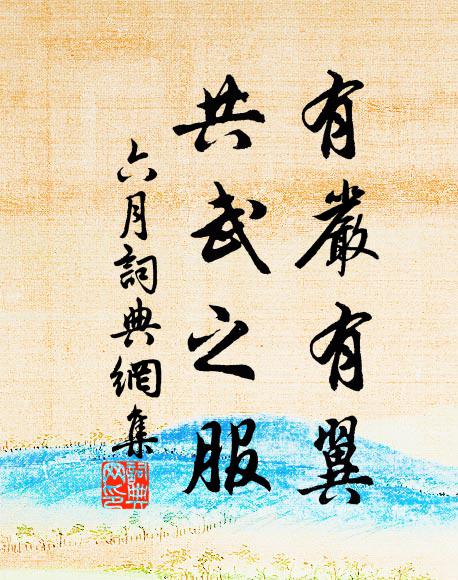 有嚴有翼
共武之服
六月詞典網集